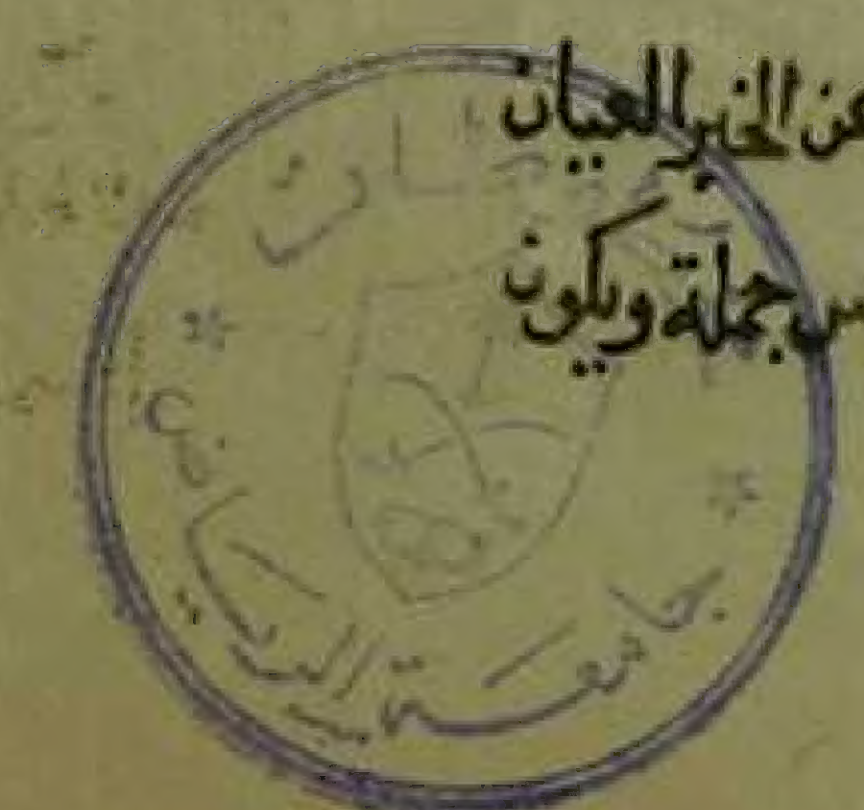 عن الخبر العيان
من جملة ويكون
جامعة الرياض